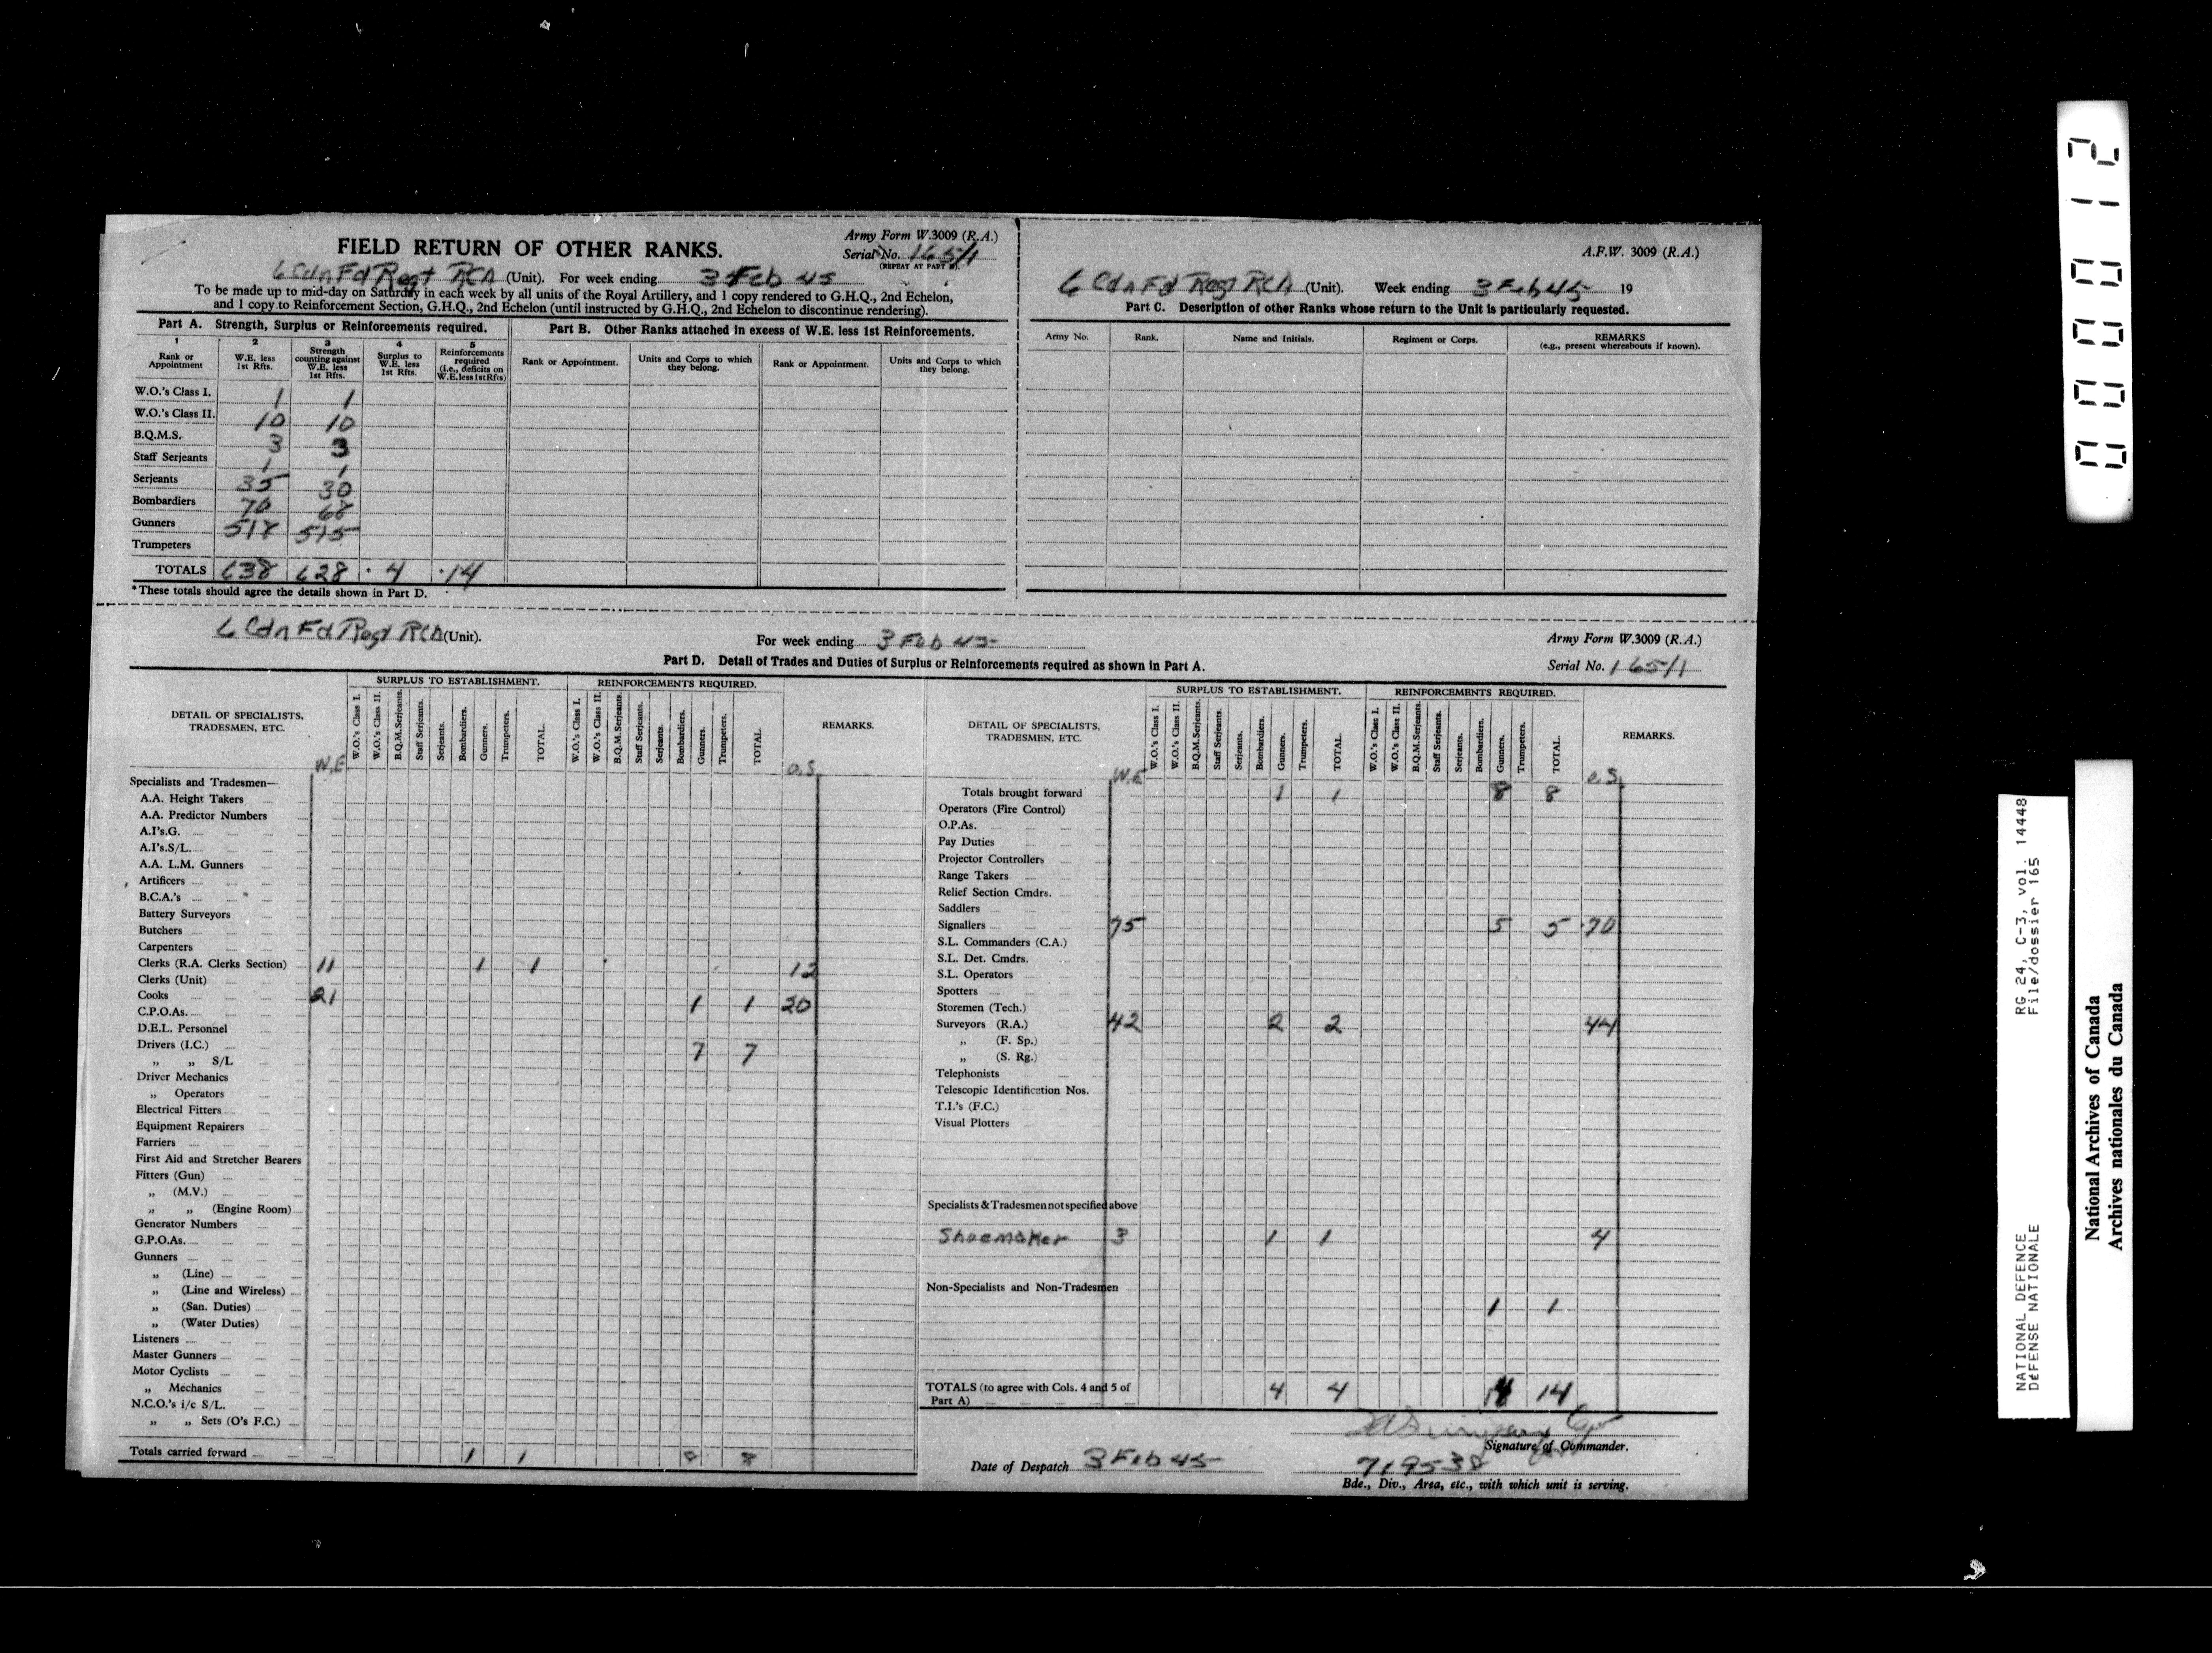 FIELD RETURN OF OTHER RANKS.
Army Form W.3009 (R.A.)
Serial No. 165/1
(REPEAT AT PART D).
6 Cdn Fd Regt RCA (Unit). For week ending 3 Feb 45
To be made up to mid-day on Saturday in each week by all units of the Royal Artillery, and 1 copy rendered to G.H.Q., 2nd Echelon,
and 1 copy to Reinforcement Section, G.H.Q., 2nd Echelon (until instructed by G.H.Q., 2nd Echelon to discontinue rendering).
Part A. Strength, Surplus or Reinforcements required.
Part B. Other Ranks attached in excess of W.E. less 1st Reinforcements.
1 2 3 4 5
Rank or Appointment
W.E. less 1st Rfts.
Strength counting against W.E. less 1st Rfts.
Surplus to W.E. less 1st Rfts.
Reinforcements required (i.e., deficits on W.E. less 1st Rfts)
Rank or Appointment.
Units and Corps to which they belong.
Rank or Appointment.
Units and Corps to which they belong.
W.O.'s Class I. 1 1
W.O.'s Class II. 10 10
B.Q.M.S. 3 3
Staff Serjeants 1 1
Serjeants 35 30
Bombardiers 70 68
Gunners 518 515
Trumpeters
TOTALS 638 628 · 4 · 14
*These totals should agree the details shown in Part D.
A.F.W. 3009 (R.A.)
6 Cdn Fd Regt RCA (Unit). Week ending 3 Feb 45 19
Part C. Description of other Ranks whose return to the Unit is particularly requested.
Army No.
Rank.
Name and Initials.
Regiment or Corps.
REMARKS
(e.g., present whereabouts if known).
6 Cdn Fd Regt RCA (Unit).
For week ending 3 Feb 45
Army Form W.3009 (R.A.)
Part D. Detail of Trades and Duties of Surplus or Reinforcements required as shown in Part A.
Serial No. 165/1
DETAIL OF SPECIALISTS, TRADESMEN, ETC.
W.E
SURPLUS TO ESTABLISHMENT.
W.O.'s Class I.
W.O.'s Class II.
B.Q.M.Serjeants.
Staff Serjeants.
Serjeants.
Bombardiers.
Gunners.
Trumpeters.
TOTAL.
REINFORCEMENTS REQUIRED.
W.O.'s Class I.
W.O.'s Class II.
B.Q.M.Serjeants.
Staff Serjeants.
Serjeants.
Bombardiers.
Gunners.
Trumpeters.
TOTAL.
O.S.
REMARKS.
Specialists and Tradesmen—
A.A. Height Takers
A.A. Predictor Numbers
A.I's.G.
A.I's.S/L.
A.A. L.M. Gunners
Artificers
B.C.A.'s
Battery Surveyors
Butchers
Carpenters
Clerks (R.A. Clerks Section) 11 1 1 12
Clerks (Unit)
Cooks 21 1 1 20
C.P.O.As.
D.E.L. Personnel
Drivers (I.C.) 7 7
„ „ S/L
Driver Mechanics
„ Operators
Electrical Fitters
Equipment Repairers
Farriers
First Aid and Stretcher Bearers
Fitters (Gun)
„ (M.V.)
„ „ (Engine Room)
Generator Numbers
G.P.O.As.
Gunners
„ (Line)
„ (Line and Wireless)
„ (San. Duties)
„ (Water Duties)
Listeners
Master Gunners
Motor Cyclists
„ Mechanics
N.C.O.'s i/c S/L.
„ „ Sets (O's F.C.)
Totals carried forward 1 1 8 8
DETAIL OF SPECIALISTS, TRADESMEN, ETC.
W.E
SURPLUS TO ESTABLISHMENT.
W.O.'s Class I.
W.O.'s Class II.
B.Q.M.Serjeants.
Staff Serjeants.
Serjeants.
Bombardiers.
Gunners.
Trumpeters.
TOTAL.
REINFORCEMENTS REQUIRED.
W.O.'s Class I.
W.O.'s Class II.
B.Q.M.Serjeants.
Staff Serjeants.
Serjeants.
Bombardiers.
Gunners.
Trumpeters.
TOTAL.
O.S.
REMARKS.
Totals brought forward 1 1 8 8
Operators (Fire Control)
O.P.As.
Pay Duties
Projector Controllers
Range Takers
Relief Section Cmdrs.
Saddlers
Signallers 75 5 5 70
S.L. Commanders (C.A.)
S.L. Det. Cmdrs.
S.L. Operators
Spotters
Storemen (Tech.)
Surveyors (R.A.) 42 2 2 44
„ (F. Sp.)
„ (S. Rg.)
Telephonists
Telescopic Identification Nos.
T.I.'s (F.C.)
Visual Plotters
Specialists & Tradesmen not specified above
Shoemaker 3 1 1 4
Non-Specialists and Non-Tradesmen
1 1
TOTALS (to agree with Cols. 4 and 5 of Part A) 4 4 14 14
Signature of Commander.
Date of Despatch 3 Feb 45
719538
Bde., Div., Area, etc., with which unit is serving.
000012
NATIONAL DEFENCE RG 24, C-3, vol. 14448
DÉFENSE NATIONALE File/dossier 165
National Archives of Canada
Archives nationales du Canada